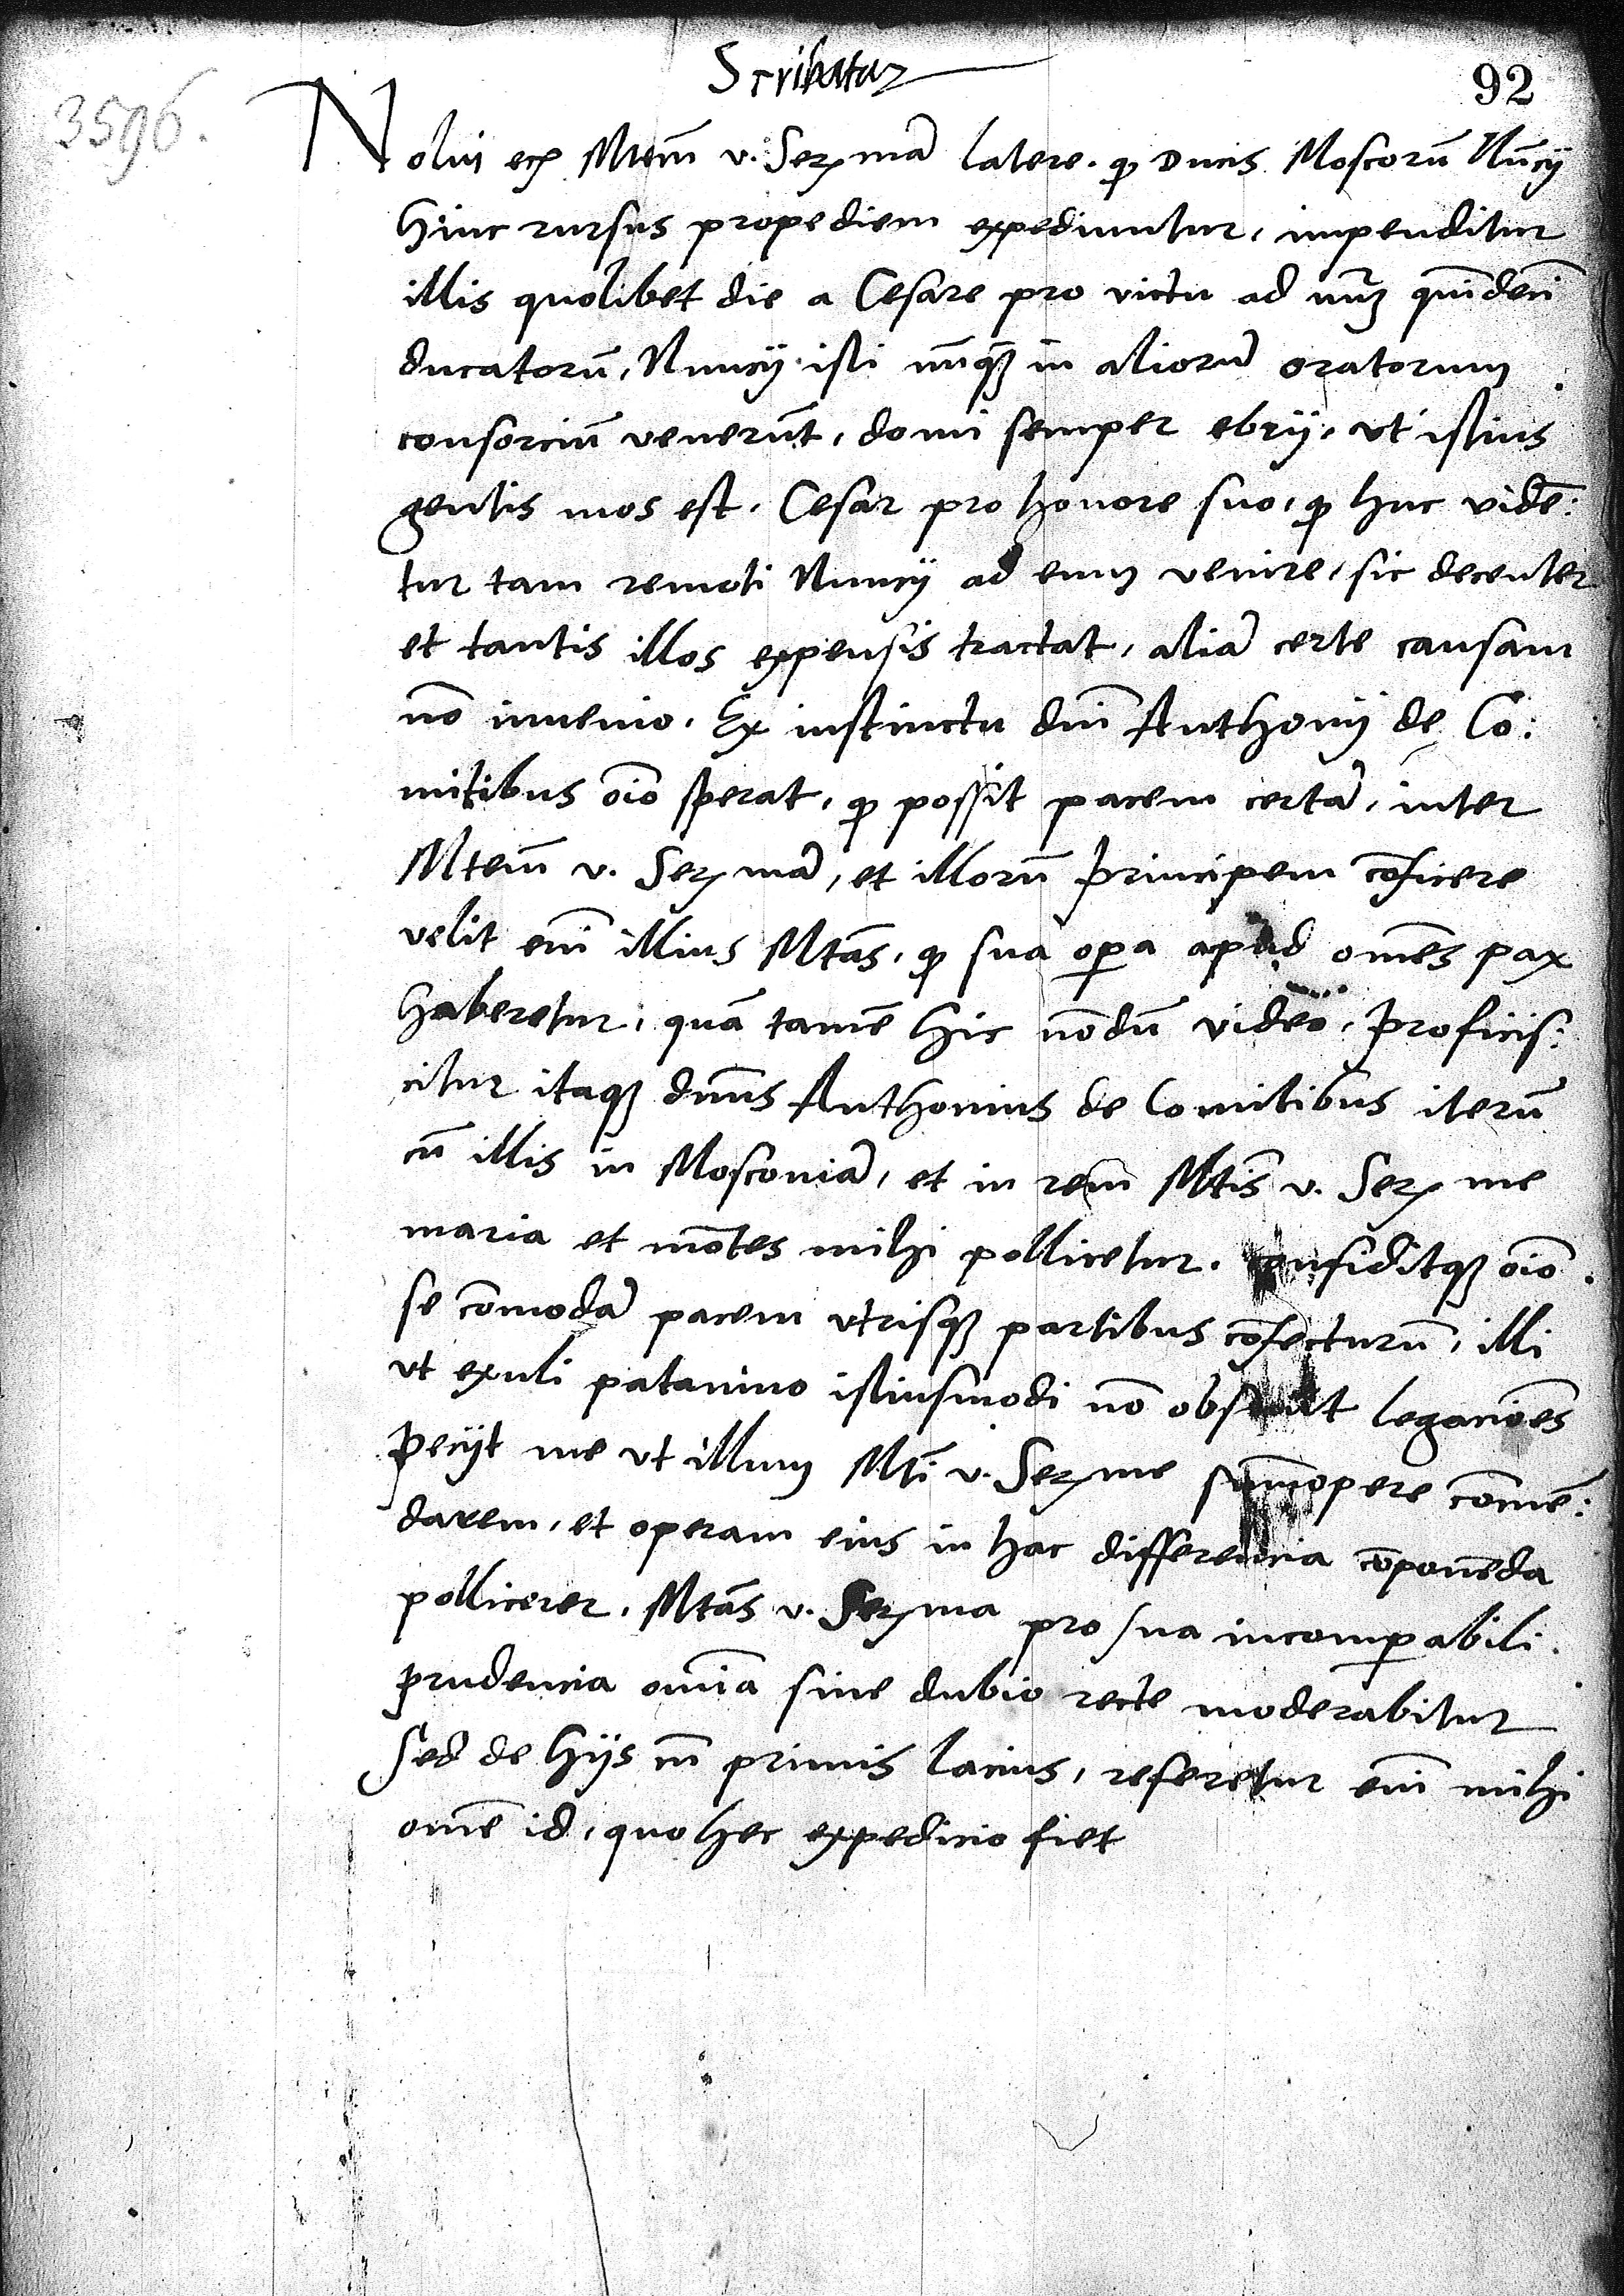 Scribatur
92
3596.
Nolui ecia Mtem v. Sermā latere. qp Ducis Moscorū Nūcij
hinc rursus propediem expediuntur, impenditur
illis quolibet die a Cesare pro victu ad quīdecī
ducatorū, Nuncij isti nūqz in aliorū oratorum
consorciū venerūt, domi semper ebrij, vt istius
gentis mos est. Cesar pro honore suo, qp huc vidē:
tur tam remoti Nuncij ad eum venire, sic decenter
et tantis illos expensis tractat, aliā certe causam
nō inuenio. Ex instinctu dnī Anthonij de Co:
mitibus oīo sperat, qp possit pacem certā, inter
Mtem v. Sermā, et illorū principem cōficere
velit enī illius Mtās, qp sua opa apud omēs pax
haberetur, quā tamē hic nōdū video. Proficis:
citur itaqz dnūs Anthonius de Comitibus iterū
cū illis in Mosconiā, et in rem Mtīs v. Serme
maria et mōtes mihi pollicetur. confiditqz oīo
se cōmodā pacem vtrisqz partibus cōfecturū, illi
vt exuli patauino istiusmodi nō obsunt legaciōes
Peciit me vt illum Mtī v. Serme sūmopere cōmē:
darem, et operam eius in hac differencia cōponēda
pollicerer. Mtās v. Serma pro sua incomparabili
prudencia omīa sine dubio recte moderabitur
Sed de hijs in primis lacius, referetur enī mihi
omē id, quo hec expedicio fiet